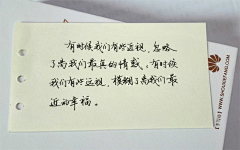 有时候我们有些近视，忽略
了离我们最真的情感。有时候
我们有些远视，模糊了离我们最
近的幸福。
WWW.SHOUXIEFANG.COM